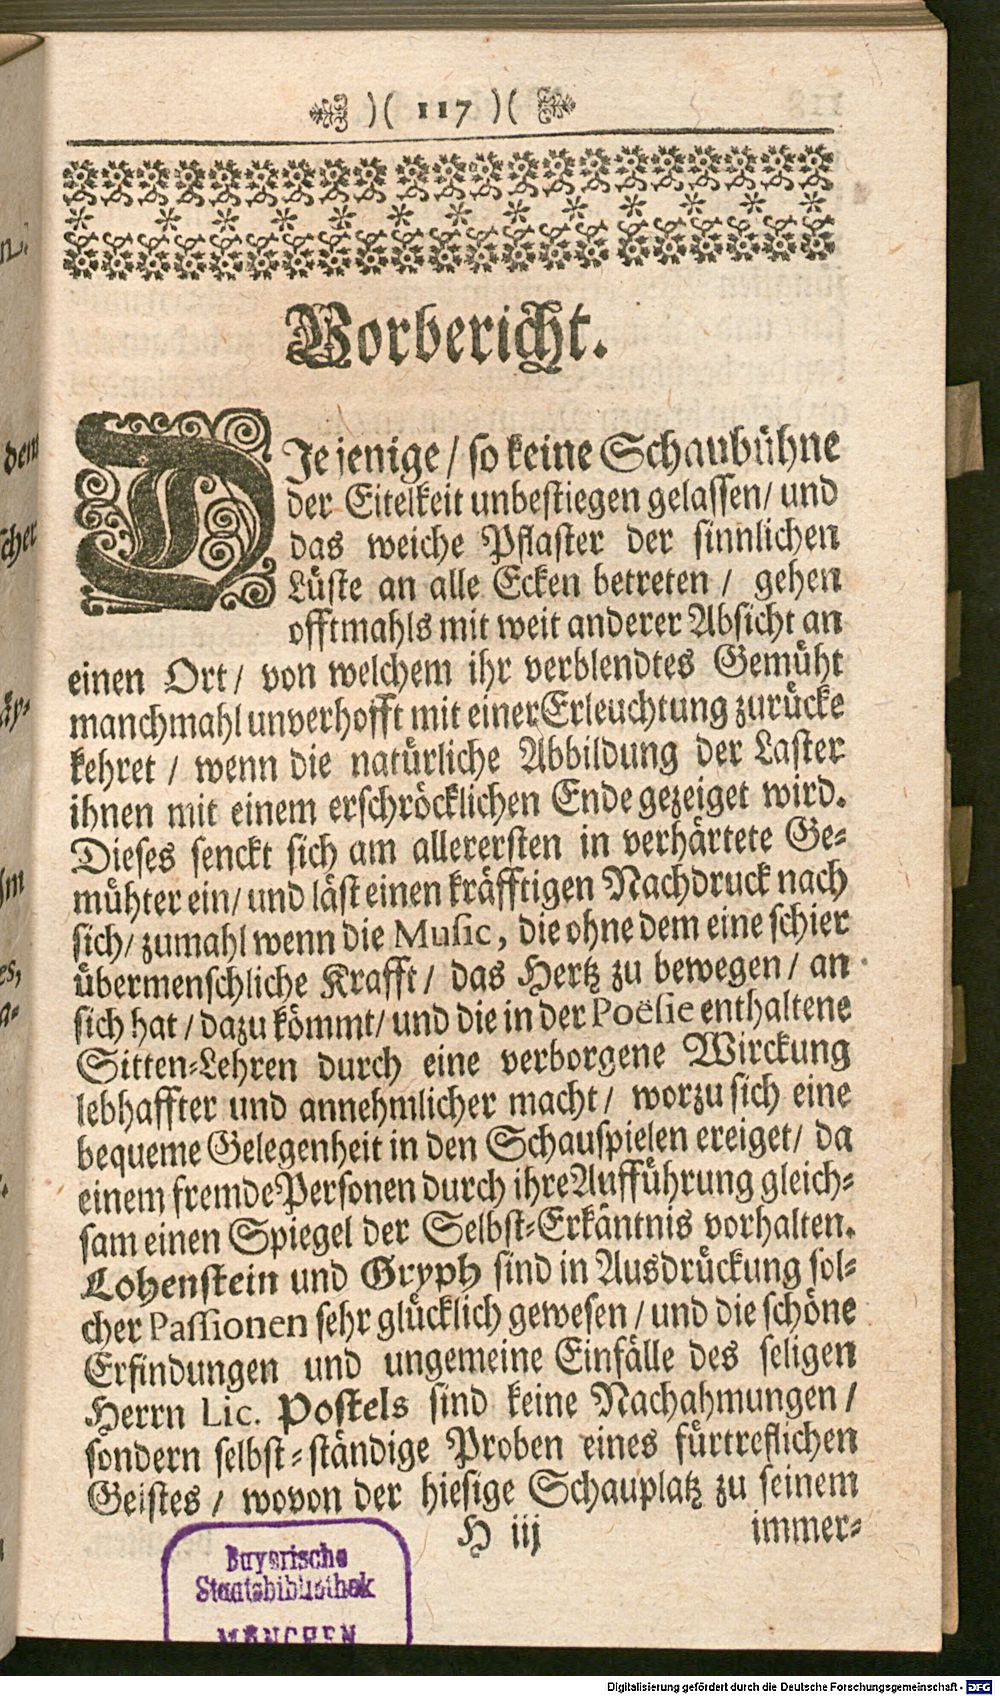 )( 117 )(
Vorbericht.
DIejenige / so keine Schaubühne
der Eitelkeit unbestiegen gelassen / und
das weiche Pflaster der sinnlichen
Lüste an alle Ecken betreten / gehen
offtmahls mit weit anderer Absicht an
einen Ort / von welchem ihr verblendtes Gemüht
manchmahl unverhofft mit einer Erleuchtung zurücke
kehret / wenn die natürliche Abbildung der Laster
ihnen mit einem erschröcklichen Ende gezeiget wird.
Dieses senckt sich am allerersten in verhärtete Ge-
mühter ein / und läst einen kräfftigen Nachdruck nach
sich / zumahl wenn die Music, die ohne dem eine schier
übermenschliche Krafft / das Hertz zu bewegen / an
sich hat / dazu kömmt / und die in der Poësie enthaltene
Sitten-Lehren durch eine verborgene Wirckung
lebhaffter und annehmlicher macht / worzu sich eine
bequeme Gelegenheit in den Schauspielen ereiget / da
einem fremde Personen durch ihre Aufführung gleich-
sam einen Spiegel der Selbst-Erkäntnis vorhalten.
Lohenstein und Gryph sind in Ausdrückung sol-
cher Passionen sehr glücklich gewesen / und die schöne
Erfindungen und ungemeine Einfälle des seligen
Herrn Lic. Postels sind keine Nachahmungen /
sondern selbst-ständige Proben eines fürtreflichen
Geistes / wovon der hiesige Schauplatz zu seinem
H iij immer-
Bayerische
Staatsbibliothek
MÜNCHEN
Digitalisierung gefördert durch die Deutsche Forschungsgemeinschaft - DFG